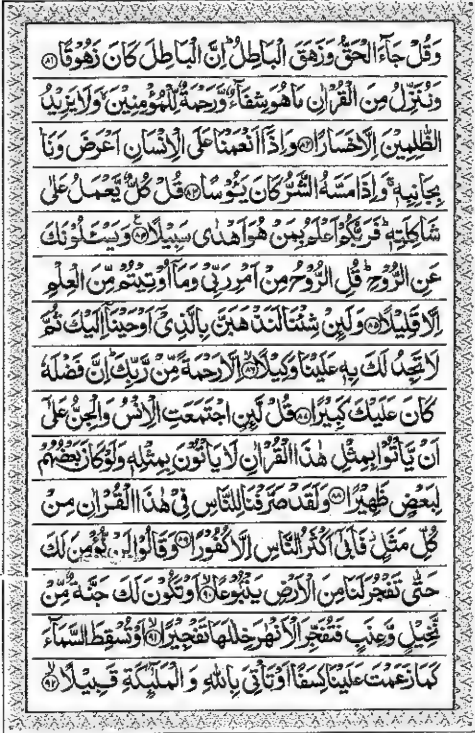 وَقُلْ جَآءَ الْحَقُّ وَزَهَقَ الْبَاطِلُ ؕ اِنَّ الْبَاطِلَ كَانَ زَهُوْقًا ﴿۸۱﴾
وَنُنَزِّلُ مِنَ الْقُرْاٰنِ مَا هُوَ شِفَآءٌ وَّرَحْمَةٌ لِّلْمُؤْمِنِيْنَ ۙ وَلَا يَزِيْدُ
الظّٰلِمِيْنَ اِلَّا خَسَارًا ﴿۸۲﴾ وَاِذَاۤ اَنْعَمْنَا عَلَى الْاِنْسَانِ اَعْرَضَ وَنَاٰ
بِجَانِبِهٖ ۚ وَاِذَا مَسَّهُ الشَّرُّ كَانَ يَـُٔوْسًا ﴿۸۳﴾ قُلْ كُلٌّ يَّعْمَلُ عَلٰى
شَاكِلَتِهٖ ؕ فَرَبُّكُمْ اَعْلَمُ بِمَنْ هُوَ اَهْدٰى سَبِيْلًا ﴿۸۴﴾ وَيَسْـَٔلُوْنَكَ
عَنِ الرُّوْحِ ؕ قُلِ الرُّوْحُ مِنْ اَمْرِ رَبِّىْ وَمَاۤ اُوْتِيْتُمْ مِّنَ الْعِلْمِ
اِلَّا قَلِيْلًا ﴿۸۵﴾ وَلَئِنْ شِئْنَا لَنَذْهَبَنَّ بِالَّذِىْۤ اَوْحَيْنَاۤ اِلَيْكَ ثُمَّ
لَا تَجِدُ لَكَ بِهٖ عَلَيْنَا وَكِيْلًا ﴿۸۶﴾ اِلَّا رَحْمَةً مِّنْ رَّبِّكَ ؕ اِنَّ فَضْلَهٗ
كَانَ عَلَيْكَ كَبِيْرًا ﴿۸۷﴾ قُلْ لَّئِنِ اجْتَمَعَتِ الْاِنْسُ وَالْجِنُّ عَلٰٓى
اَنْ يَّاْتُوْا بِمِثْلِ هٰذَا الْقُرْاٰنِ لَا يَاْتُوْنَ بِمِثْلِهٖ وَلَوْ كَانَ بَعْضُهُمْ
لِبَعْضٍ ظَهِيْرًا ﴿۸۸﴾ وَلَقَدْ صَرَّفْنَا لِلنَّاسِ فِىْ هٰذَا الْقُرْاٰنِ مِنْ
كُلِّ مَثَلٍ ؗ فَاَبٰٓى اَكْثَرُ النَّاسِ اِلَّا كُفُوْرًا ﴿۸۹﴾ وَقَالُوْا لَنْ نُّؤْمِنَ لَكَ
حَتّٰى تَفْجُرَ لَنَا مِنَ الْاَرْضِ يَنْۢبُوْعًا ﴿۹۰﴾ اَوْ تَكُوْنَ لَكَ جَنَّةٌ مِّنْ
نَّخِيْلٍ وَّعِنَبٍ فَتُفَجِّرَ الْاَنْهٰرَ خِلٰلَهَا تَفْجِيْرًا ﴿۹۱﴾ اَوْ تُسْقِطَ السَّمَآءَ
كَمَا زَعَمْتَ عَلَيْنَا كِسَفًا اَوْ تَاْتِىَ بِاللّٰهِ وَالْمَلٰٓئِكَةِ قَبِيْلًا ﴿۹۲﴾